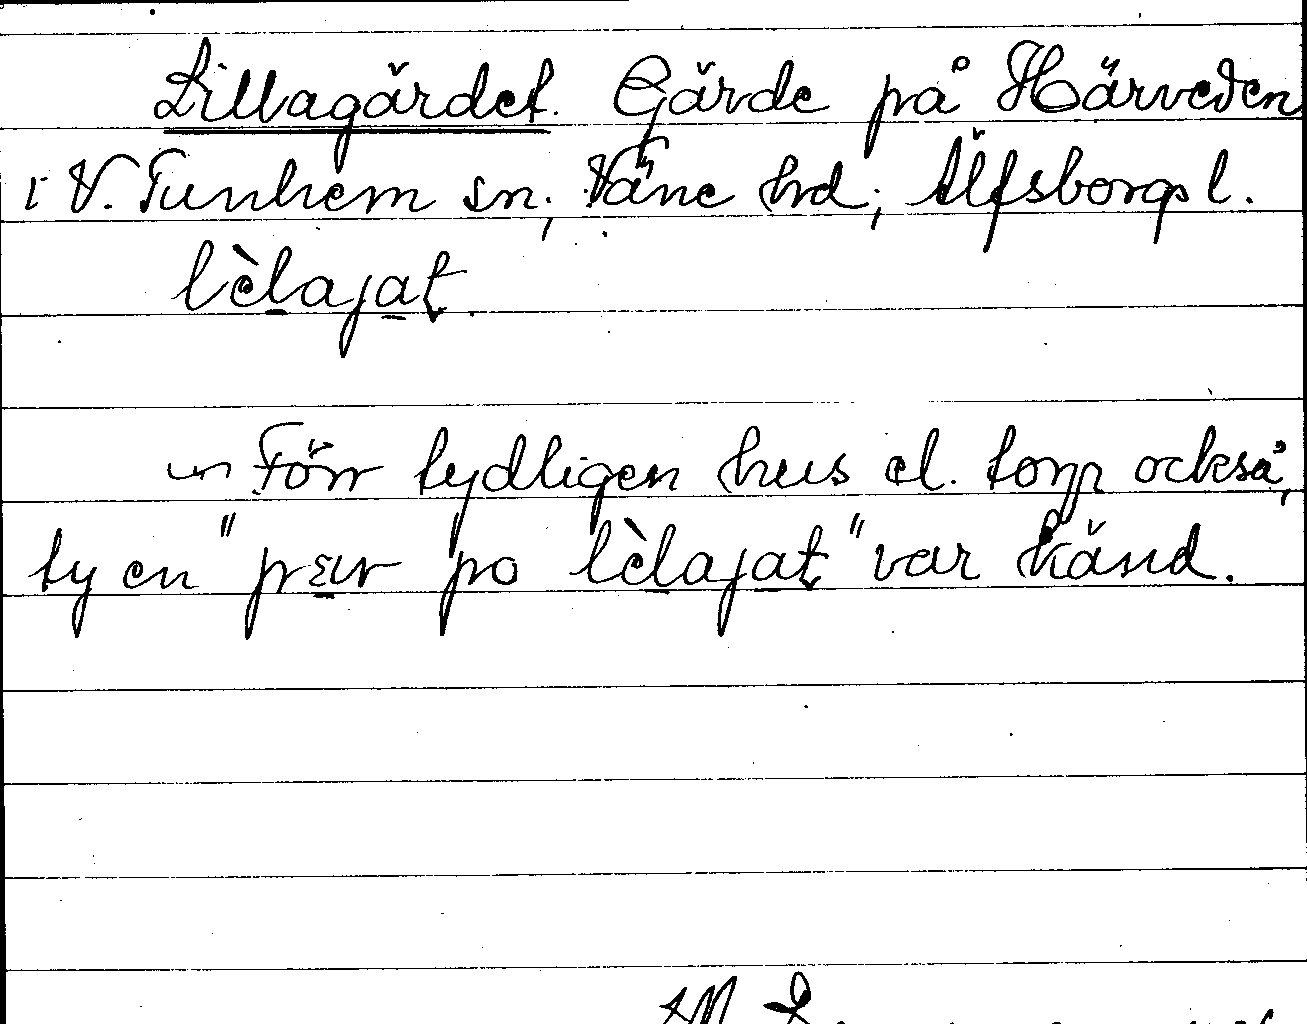 Lillagärdet. Gärde på Härveden
i V. Tunhem sn; Väne hd; Älfsborgs l.
lèlajat.
Förr tydligen hus el. torp också,
ty en "pær po lèlajat" var känd.